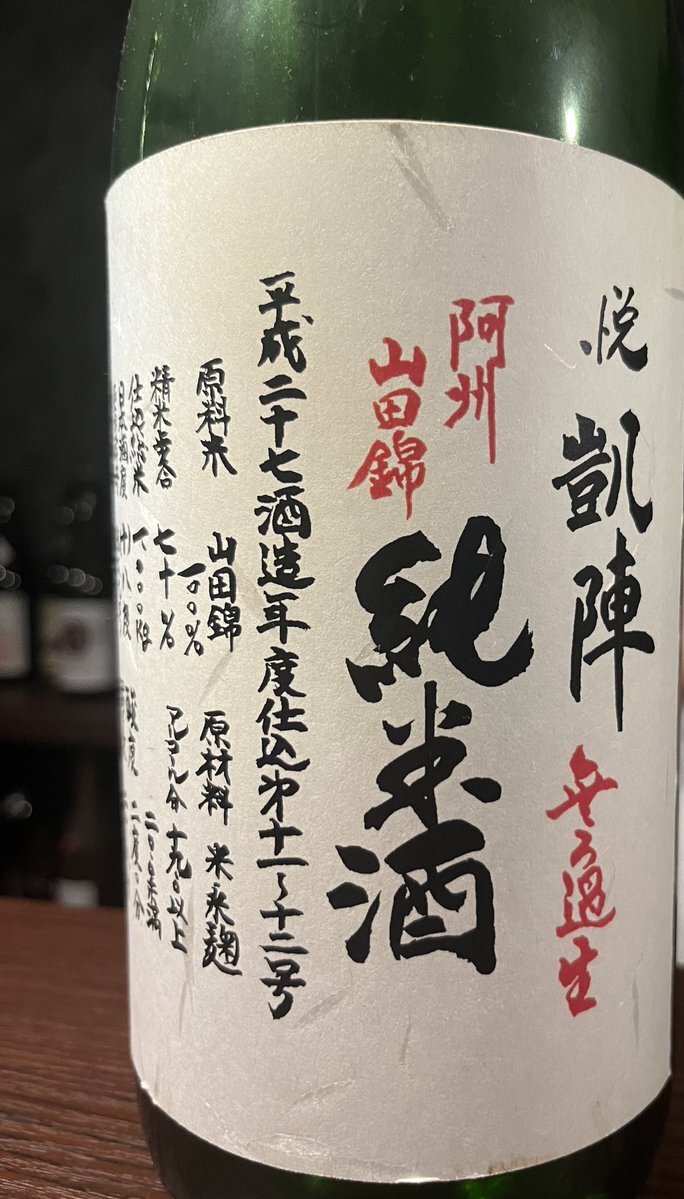 悦
凱陣
無ろ過生
阿州
山田錦
純米酒
平成二十七酒造年度仕込第十一〜十二号
原料米 山田錦 一〇〇%
原材料 米米麹
精米歩合 七十%
アルコール分 十九.〇以上
二〇.〇未満
仕込総米
日本酒度
酸度